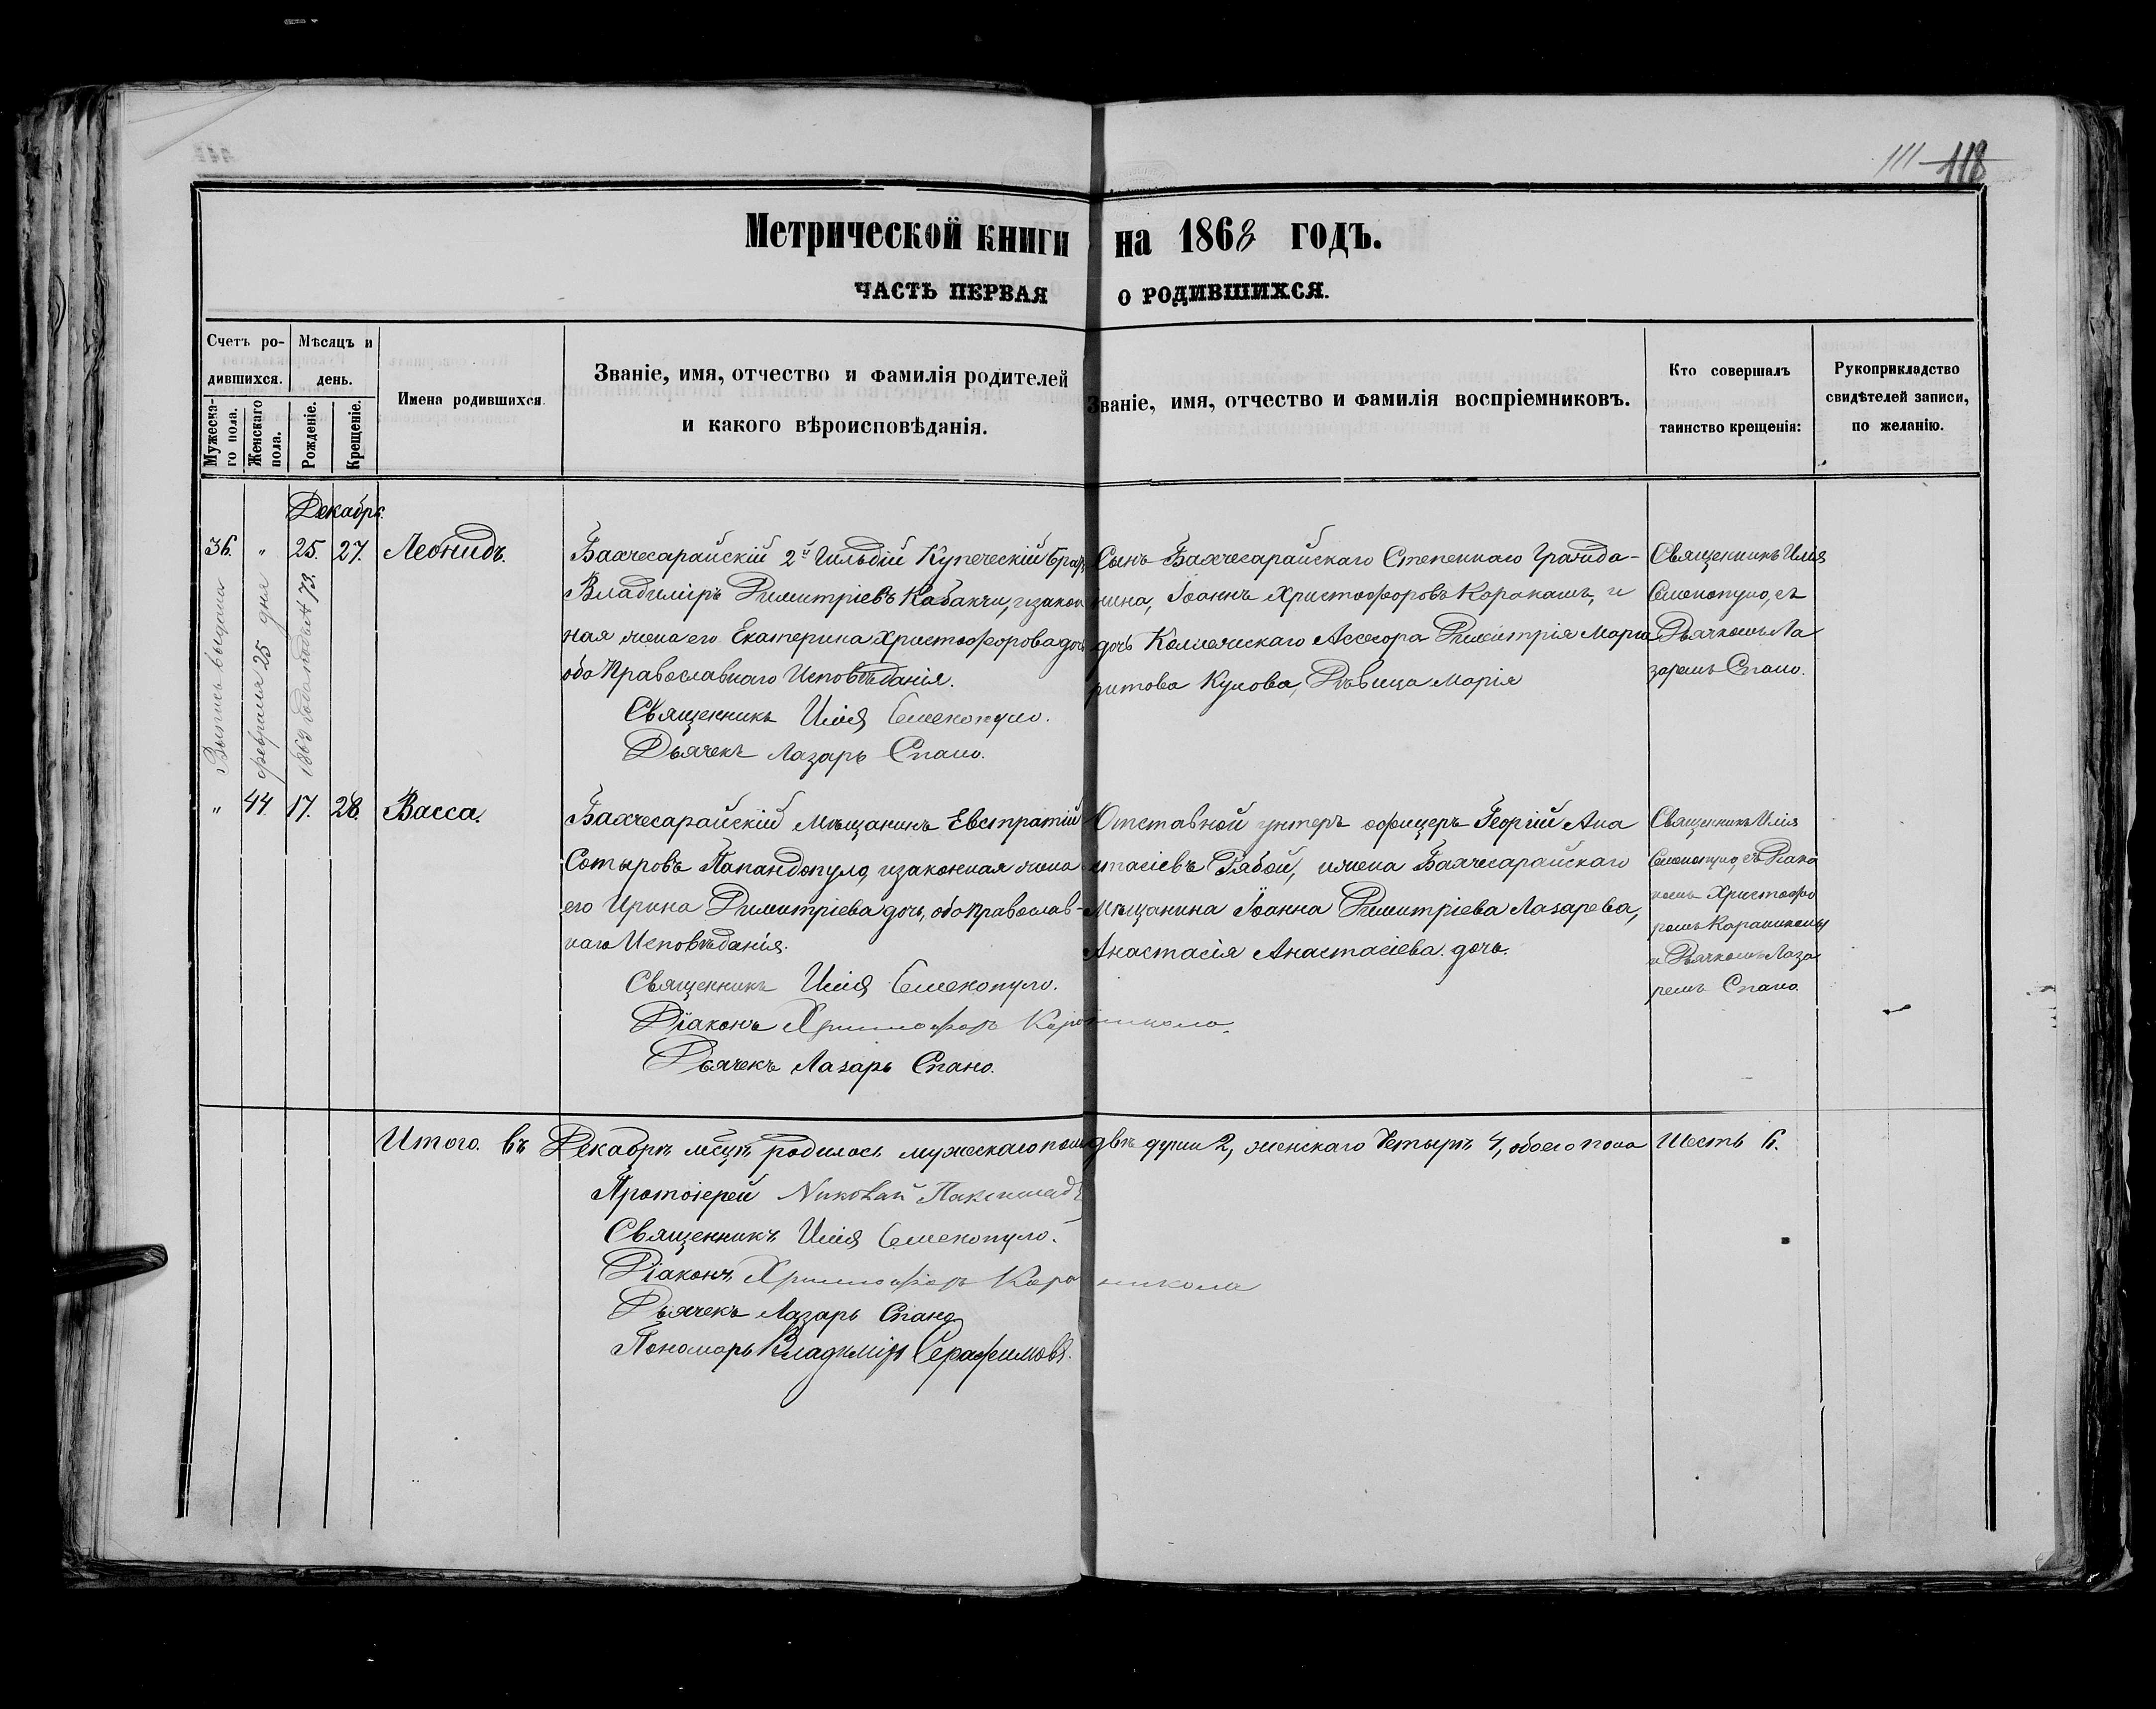 111 118
Метрической книги на 1868 годъ.
ЧАСТЬ ПЕРВАЯ О РОДИВШИХСЯ.
Счетъ ро-
дившихся.
Мужеска-
го пола.
Женскаго
пола.
Мѣсяцъ и
день.
Рожденіе.
Крещеніе.
Имена родившихся
Званіе, имя, отчество и фамилія родителей
и какого вѣроисповѣданія.
Званіе, имя, отчество и фамилія воспріемниковъ.
Кто совершалъ
таинство крещенія:
Рукоприкладство
свидѣтелей записи,
по желанію.
Декабрь.
36. " 25. 27. Леонидъ.
Бахчесарайскій 2й Гильдіи Купеческій братъ
Владиміръ Димитріевъ Кабакчи, и закон
ная жена его Екатерина Христофорова дочь
обо Православнаго Исповѣданія.
Священникъ Илія Семенопуло.
Дьячекъ Лазарь Спано.
Сынъ Бахчесарайскаго Степеннаго Гражда-
нина, Іоаннъ Христофоровъ Каракашъ, и
дочь Коллежскаго Ассесора Димитрія Марга
ритова Кулова, Дѣвица Марія
Священникъ Илія
Семенопуло, съ
Дьячкомъ Ла
заремъ Спано.
Выпись выдана
февраля 25 дня
" 44. 17. 28. Васса.
Бахчесарайскій Мѣщанинъ Евстратій
Сотыровъ Папандопуло, и законная жена
его Ирина Димитріева дочь, обо Православ-
наго Исповѣданія.
Священникъ Илія Семенопуло.
Діаконъ Христофоръ Караникола.
Дьячекъ Лазарь Спано.
Отставной унтеръ офицеръ Георгій Ана
стасіевъ Рябой, и жена Бахчесарайскаго
Мѣщанина Іоанна Димитріева Лазарева,
Анастасія Анастасіева дочь.
Священникъ Илія
Семенопуло, съ Діако
номъ Христофо
ромъ Караниколы
и Дьячкомъ Лаза
ремъ Спано.
Итого. въ Декабрѣ мсцѣ родилось мужескаго пола двѣ души 2, женскаго Четырѣ 4, обоего пола Шесть 6.
Протоіерей Николай
Священникъ Илія Семенопуло.
Діаконъ Христофоръ Караникола
Дьячекъ Лазарь Спано
Пономарь Владиміръ Серафимовъ.